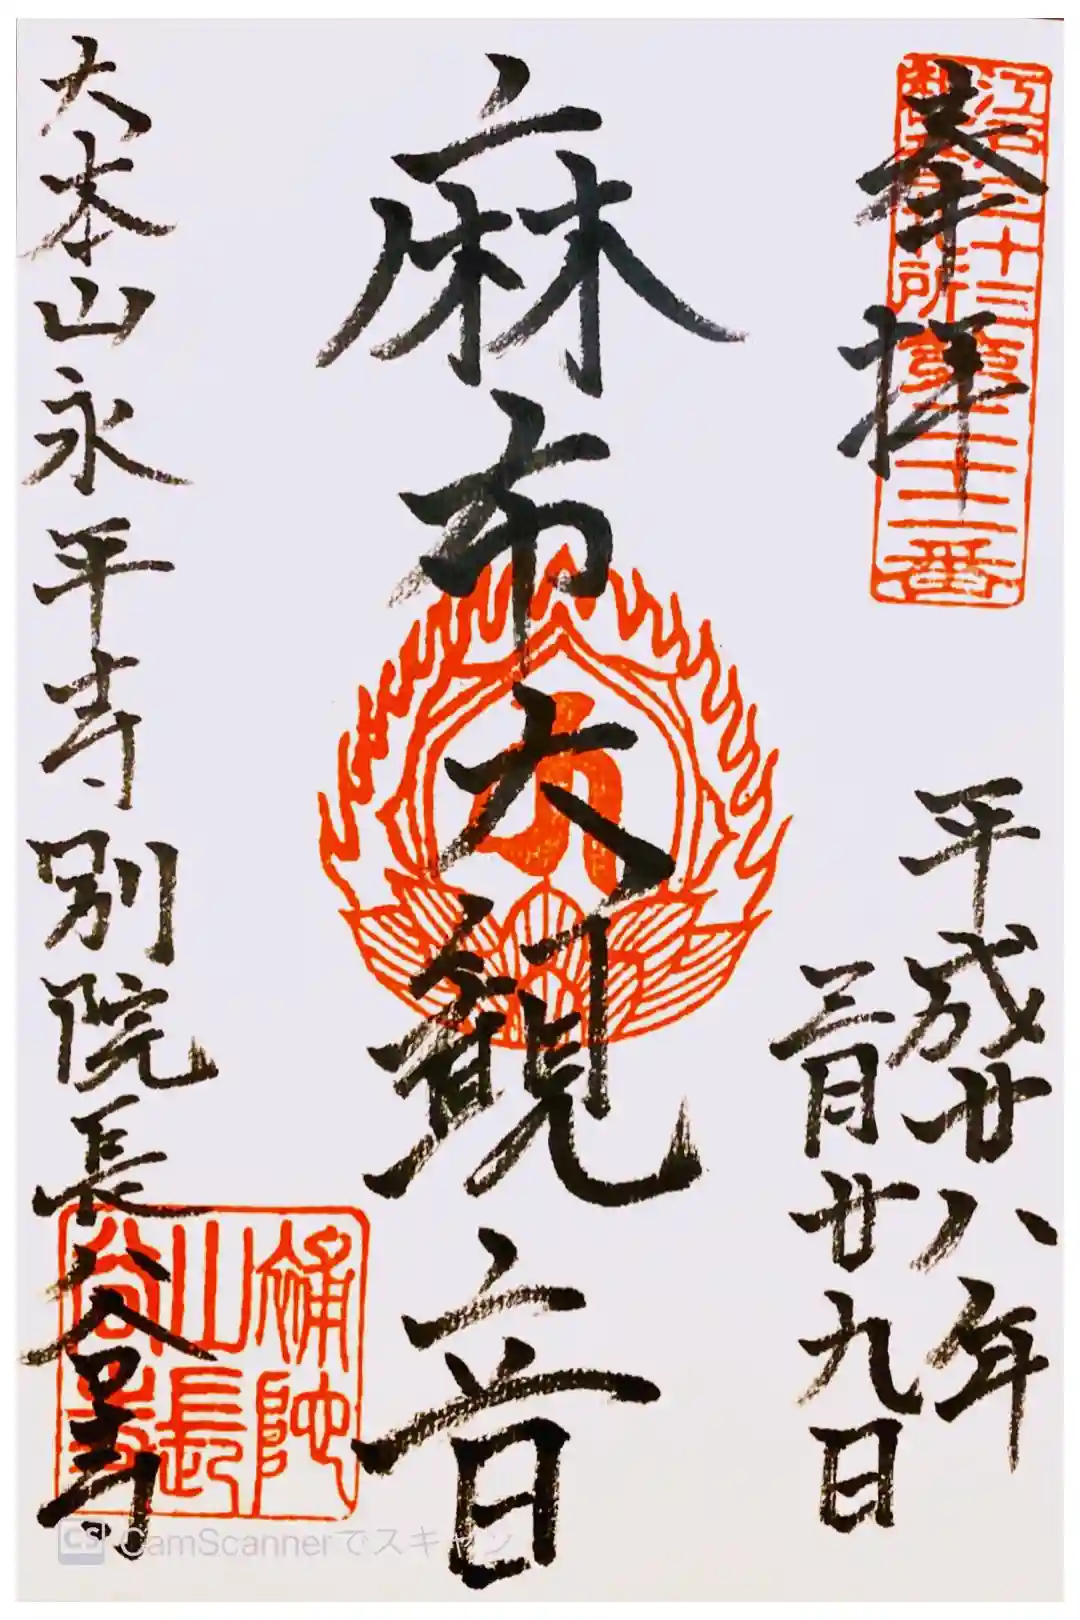 奉拝
江戸三十三
観音札所第二十二番
平成廿八年
三月廿九日
麻布大観音
大本山永平寺別院長谷寺
補陀
山長
谷寺
CamScannerでスキャン